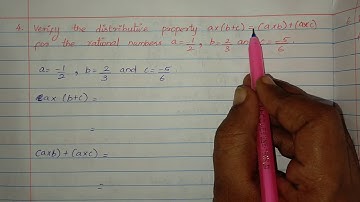 4. Verify the distributive property a×(b+c) = (a×b)+(a×c)
for the rational numbers a=-1/2, b=2/3 and c=-5/6.
a=-1/2, b=2/3 and c=-5/6.
a×(b+c) =
=
(a×b)+(a×c) =
=